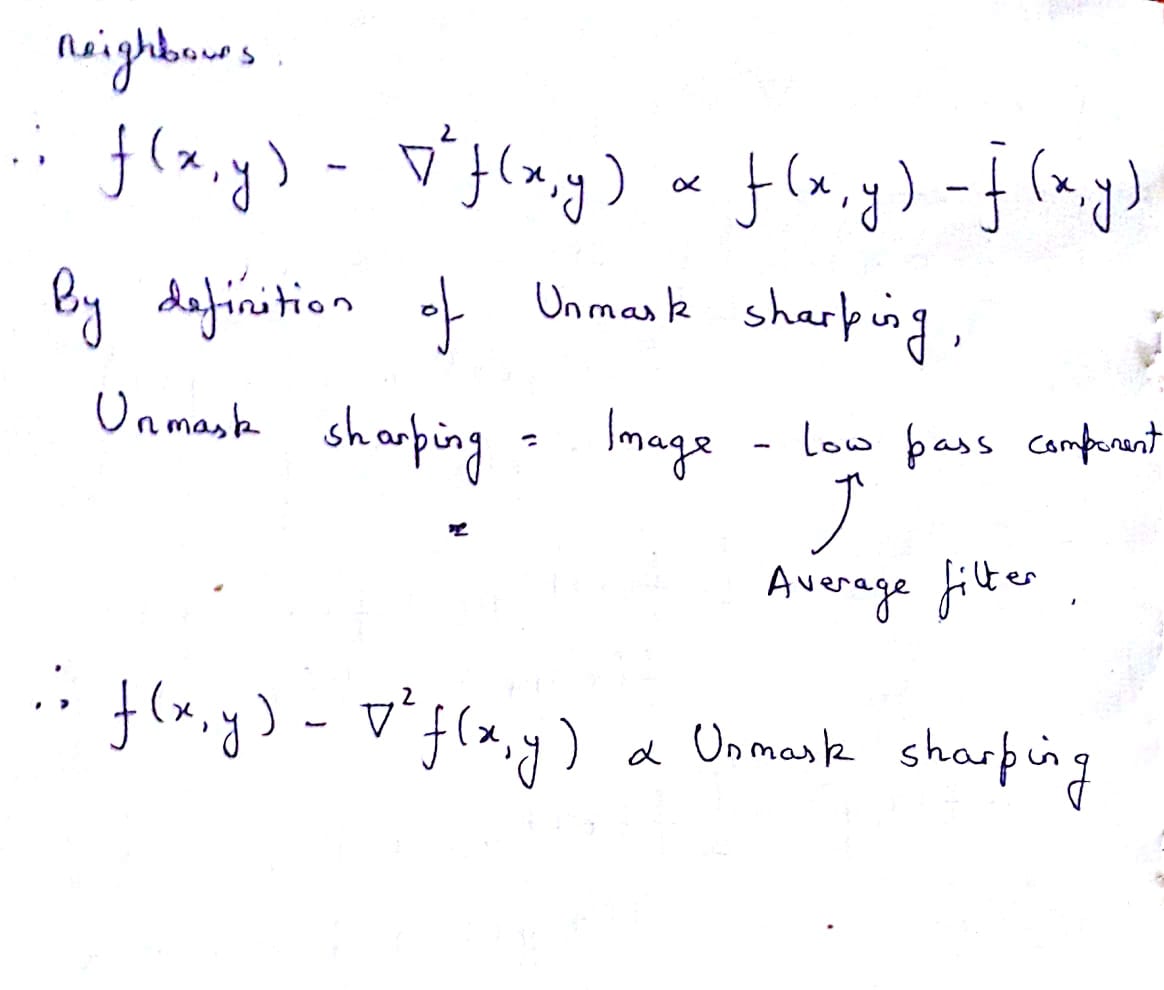 neighbours.
∴ f(x,y) - ∇²f(x,y) ∝ f(x,y) - f̄(x,y)
By definition of Unmask sharping,
Unmask sharping = Image - low pass component
=
Average filter.
∴ f(x,y) - ∇²f(x,y) ∝ Unmask sharping